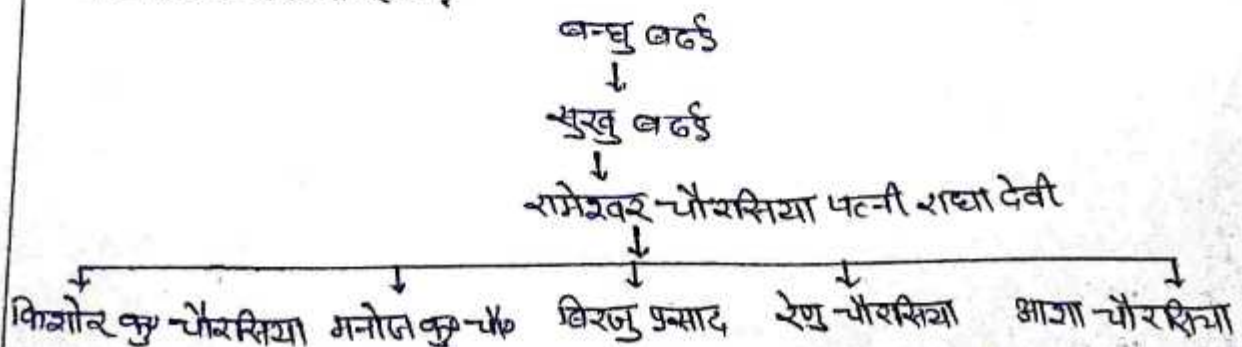 बन्धु बढई
सुखु बढई
रामेश्वर चौरसिया पत्नी राधा देवी
किशोर कु॰ चौरसिया मनोज कु॰ चौ॰ बिरजु प्रसाद रेणु चौरसिया आशा चौरसिया